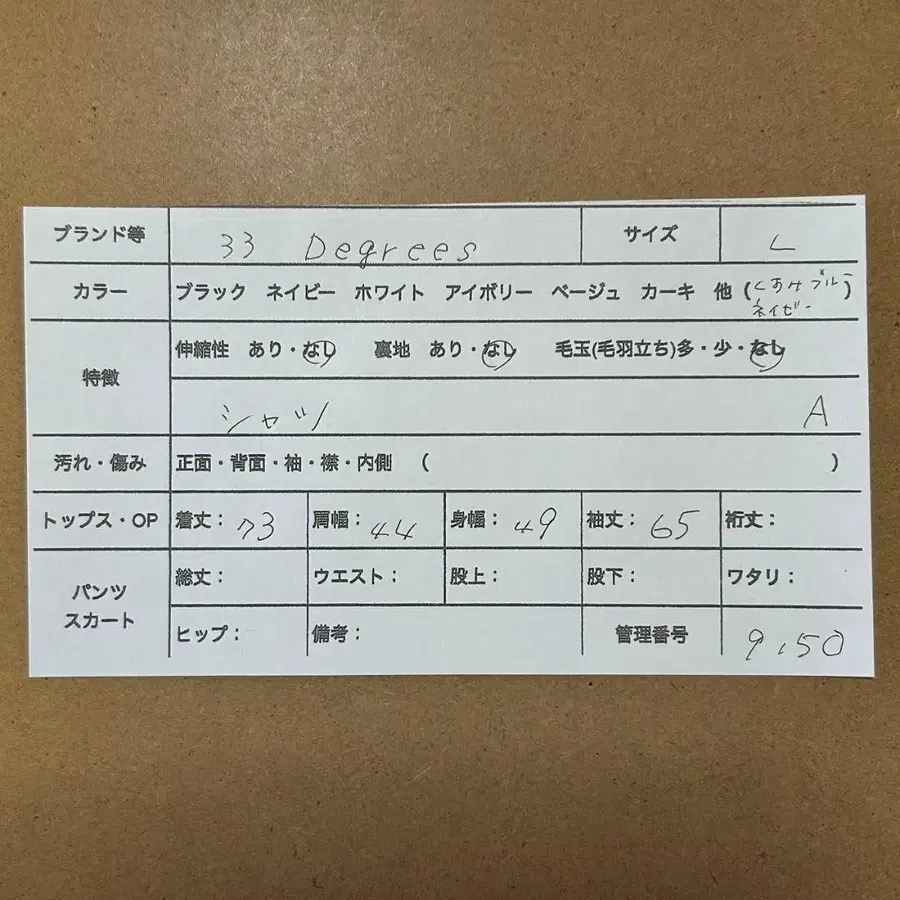 ブランド等 33 Degrees サイズ L
カラー ブラック ネイビー ホワイト アイボリー ベージュ カーキ 他(ブルー)
ネイビー
特徴 伸縮性 あり・なし 裏地 あり・なし 毛玉(毛羽立ち)多・少・なし
シャツ A
汚れ・傷み 正面・背面・袖・襟・内側 ( )
トップス・OP 着丈:73 肩幅:44 身幅:49 袖丈:65 裄丈:
パンツ スカート 総丈: ウエスト: 股上: 股下: ワタリ:
ヒップ: 備考: 管理番号 9.50